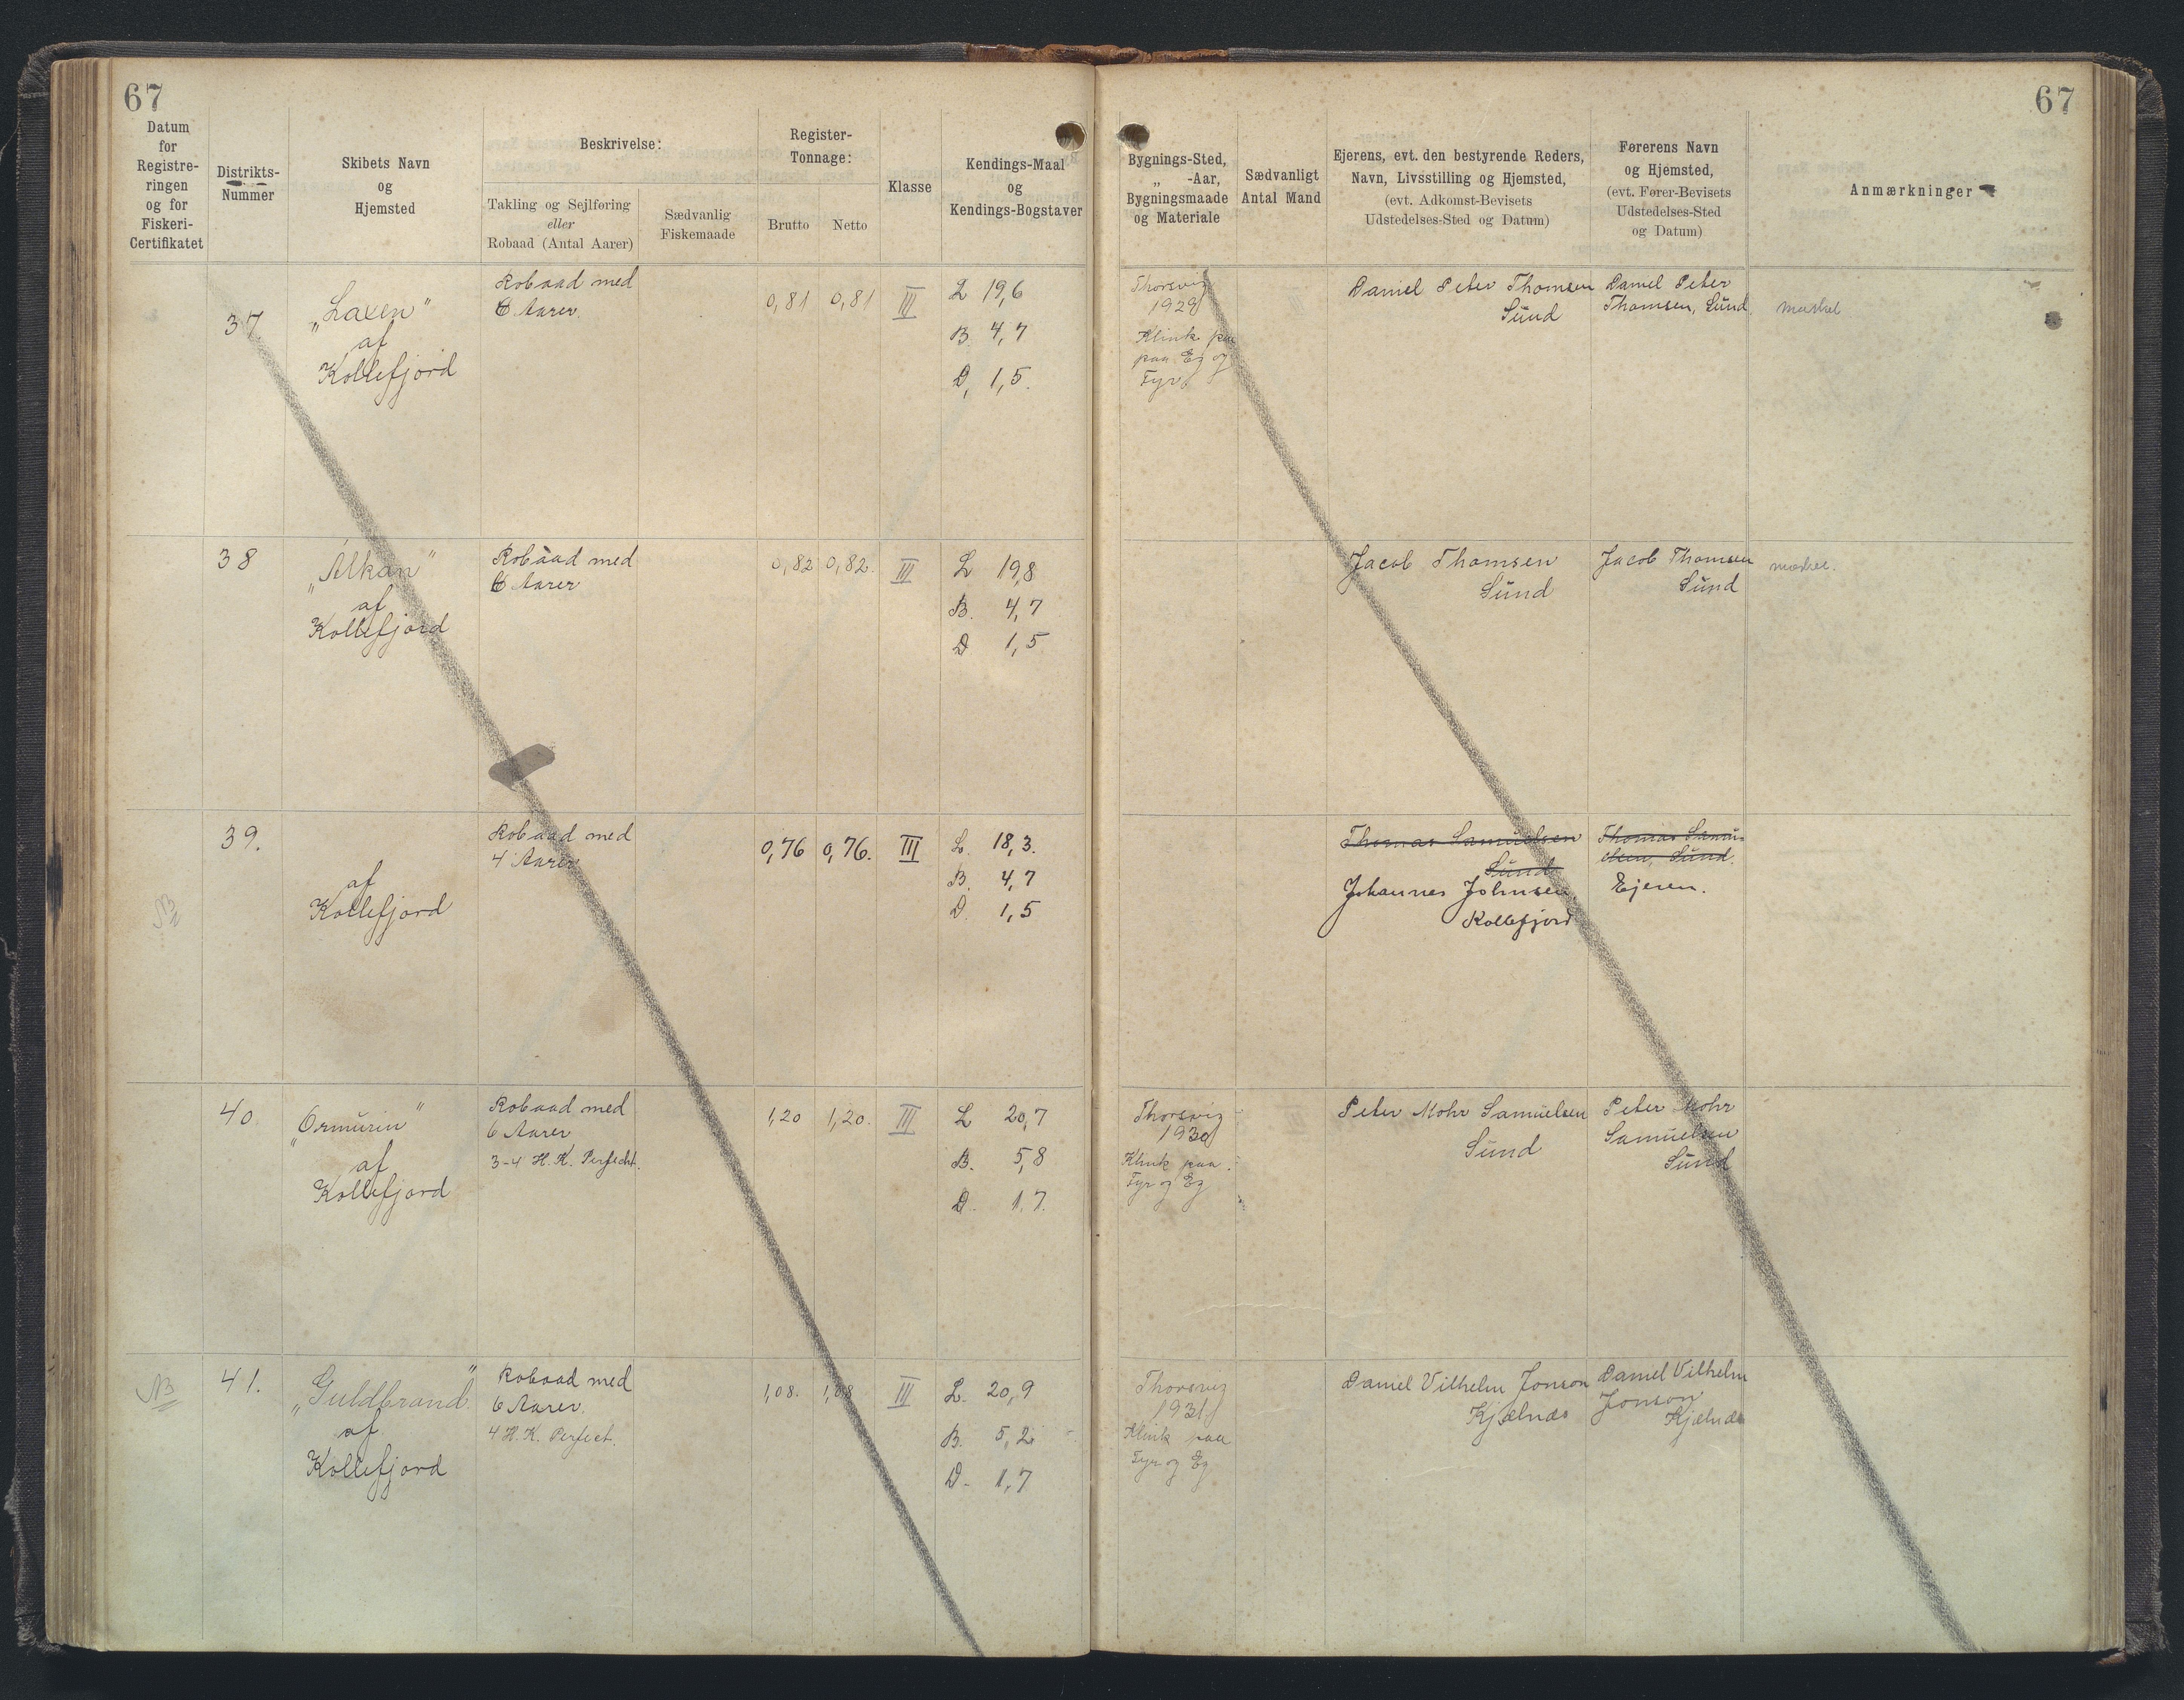 67
67
Datum
for
Registre-
ringen
og for
Fiskeri-
Certifikatet
Distrikts-
Nummer
Skibets Navn
og
Hjemsted
Beskrivelse:
Takling og Sejlføring
eller
Robaad (Antal Aarer)
Sædvanlig
Fiskemaade
Register-
Tonnage:
Brutto Netto
Klasse
Kendings-Maal
og
Kendings-Bogstaver
Bygnings-Sted,
„ -Aar,
Bygningsmaade
og Materiale
Sædvanligt
Antal Mand
Ejerens, evt. den bestyrende Reders,
Navn, Livsstilling og Hjemsted,
(evt. Adkomst-Bevisets
Udstedelses-Sted og Datum)
Førerens Navn
og Hjemsted,
(evt. Fører-Bevisets
Udstedelses-Sted
og Datum)
Anmærkninger
37
„Laxen"
af
Kollefjord
Robaad med
6 Aarer.
0,81 0,81 III
L 19,6
B. 4,7
D, 1,5.
Thorsvig
1929
Klink paa
paa Eg og
Fyr
Daniel Peter Thomsen
Sund
Daniel Peter
Thomsen, Sund
38
„Álkan"
af
Kollefjord
Robaad med
6 Aarer
0,82 0,82. III
L 19,8
B. 4,7
D 1,5
Jacob Thomsen
Sund
Jacob Thomsen
Sund
39.
af
Kollefjord
Robaad med
4 Aarer
0,76 0,76. III
L. 18,3.
B. 4,7
D. 1,5
Thomas Samuelsen
Sund
Johannes Johnsen
Kollefjord
Thomas Samu-
elsen, Sund.
Ejeren.
NB
40
„Ormurin"
af
Kollefjord
Robaad med
6 Aarer
3-4 H.K. Perfecht.
1,20 1,20. III
L 20,7
B. 5,8
D. 1,7.
Thorsvig
1930
Klink paa
Fyr og Eg
Peter Mohr Samuelsen
Sund
Peter Mohr
Samuelsen
Sund
NB
41.
„Guldbrand"
af
Kollefjord
Robaad med
6 Aarer.
4 H.K. Perfect.
1,08. 1,08 III
L. 20,9
B. 5,2
D. 1,7
Thorsvig
1931
Klink paa
Fyr og Eg
Daniel Vilhelm Jonson
Kjælnæs
Daniel Vilhelm
Jonson
Kjælnæs